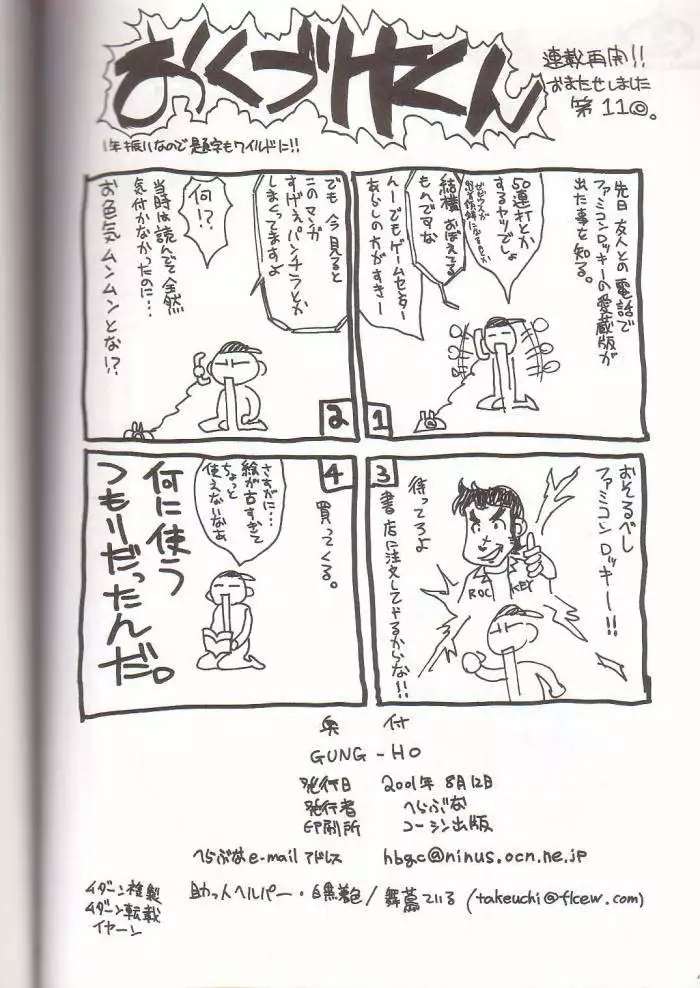 おくづけくん
連載再開!!
おまたせしました
第11回。
1年振りなので題字もワイルドに!!
先日友人との電話で
ファミコンロッキーの愛蔵版が
出た事を知る。
50連打とか
するヤツでしょ
結構おぼえてる
もんですな
んーでもゲームセンター
あらしの方がすきー
1
でも今見ると
このマンガ
すげえパンチラとか
しまくってますよ
何!?
当時は読んでて全然
気付かなかったのに…
お色気ムンムンとな!?
2
おそるべし
ファミコンロッキー!!
ROC KEY
待ってろよ
書店に注文してやるからな!!
3
買ってくる。
さすがに…
絵が古すぎて
ちょっと
使えないなあ
何に使う
つもりだったんだ。
4
奥付
GUNG-HO
発行日 2001年8月12日
発行者 へらぶな
印刷所 コーシン出版
へらぶなe-mailアドレス hbgc@ninus.ocn.ne.jp
イダーン複製
イダーン転載
イヤーン
助っ人ヘルパー・白黒着色/舞蔦ている (takeuchi@flcew.com)